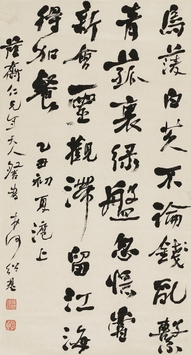 烏菱白芡不論錢亂繫
青菰裹綠盤忽憶嘗
新會靈觀滯留江海
得加餐 乙丑初夏滬上
齋仁兄大人 何紹基